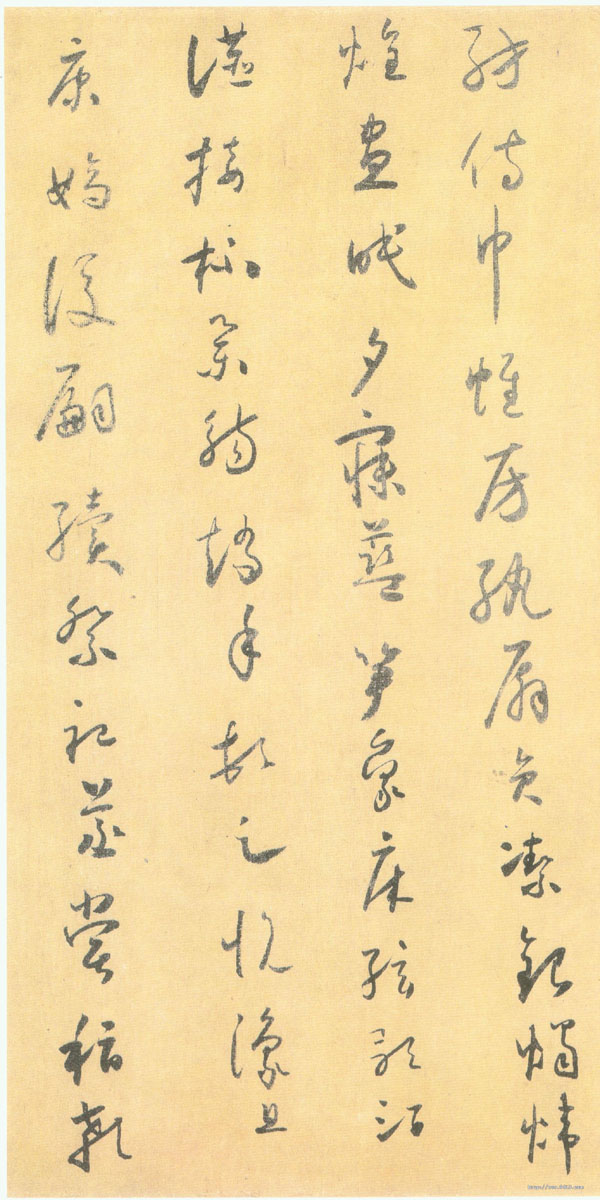 紡侍巾帷房紈扇員潔銀燭煒
煌晝眠夕寐藍笋象床弦歌酒
讌接杯舉觴矯手頓足悅豫且
康嫡後嗣續祭祀蒸嘗稽顙